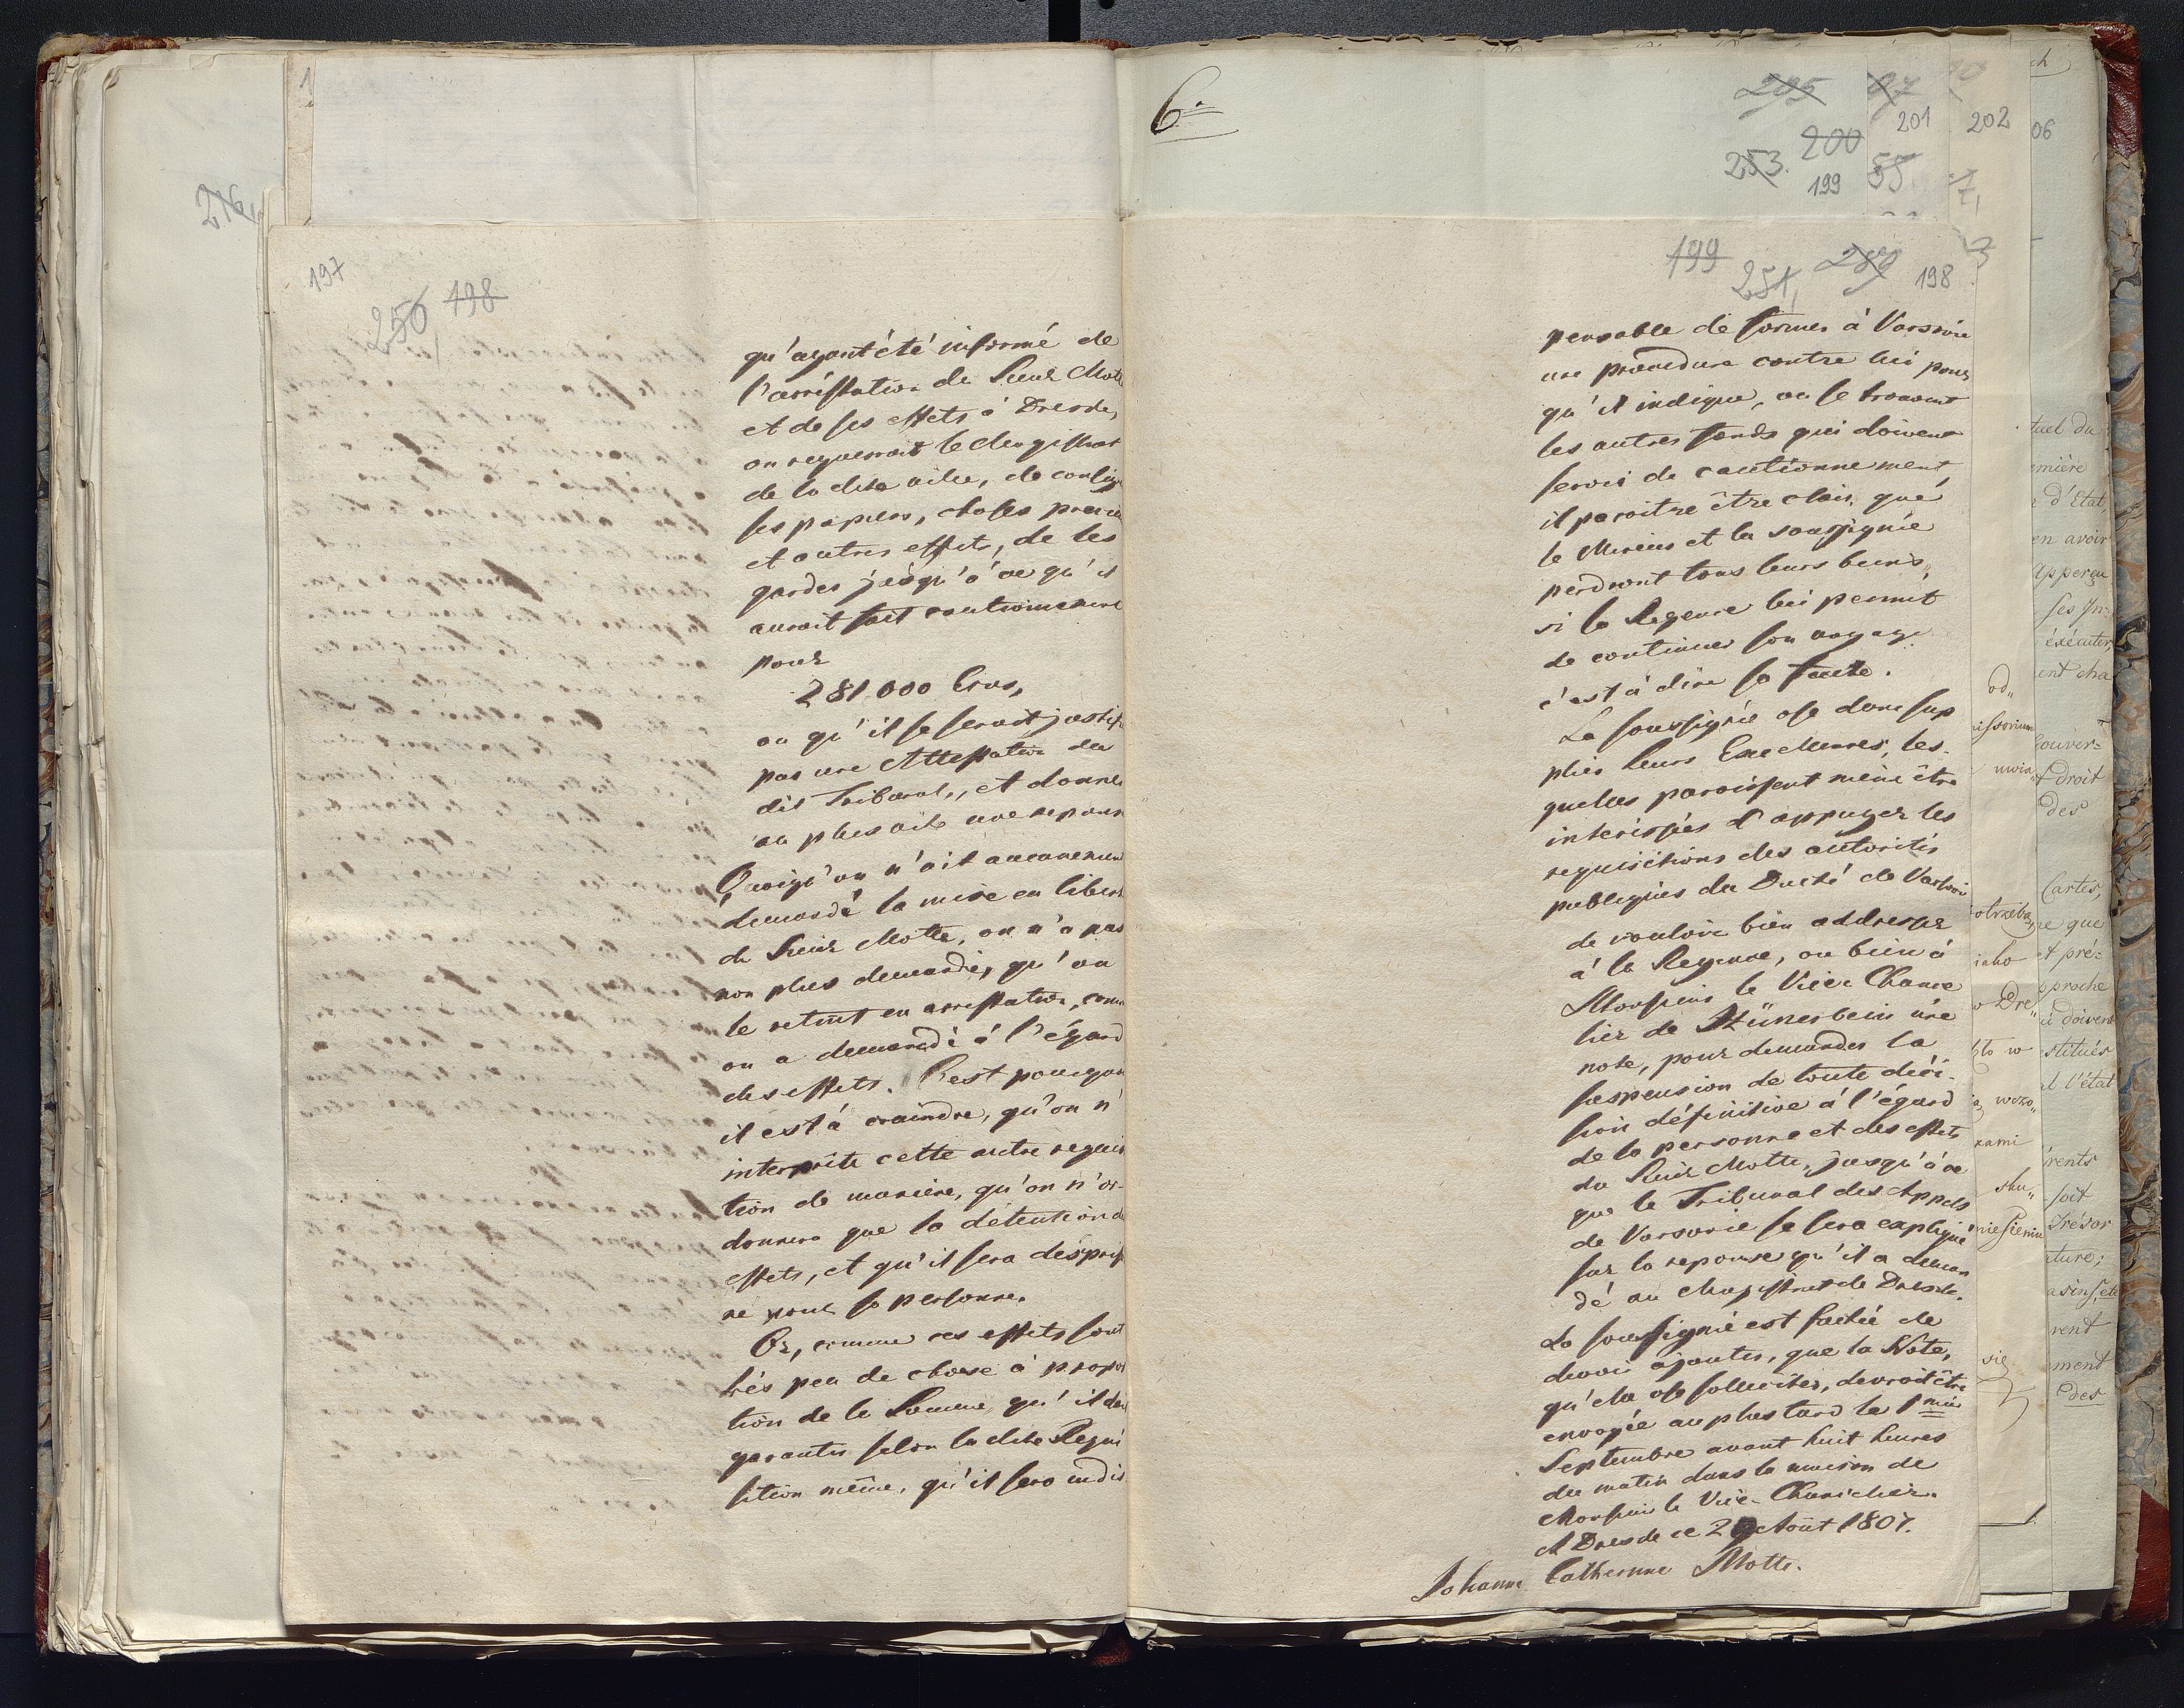 216
197
250 198
qu'ayant été informé de
l'arrestation de Sieur Motte
et de ses effets à Dresde,
on requerroit le Magistrat
de la dite ville, de
ses papiers, choses
et autres effets, de les
garder jusqu'à ce qu'il
auroit fait cautionnement
pour
281.000 Ecus,
ou qu'il se seroit justif
par une Attestation du
dit Tribunal, et donner
au plus vite une reponse
Quoiqu'on n'ait aucunement
demandé la mise en liberté
de Sieur Motte, on n'a pas
non plus demandé, qu'on
le retint en arrestation, comme
on a demandé à l'égard
des effets. C'est pourquoi
il est à craindre, qu'on n'
interprête cette autre requisi
tion de manière, qu'on n'or-
donnera que la détention de
effets, et qu'il sera
re pour sa personne.
Or, comme ces effets sont
très peu de chose à propor
tion de la Somme, qu'il doit
garantir selon la dite Requi
sition même, qu'il sera indis
6.
205 97
201 202 06
200
253. 199 55
199 251, 198
pensable de former à Varsovie
une procedure contre lui pour
qu'il indique, ou se trouvent
les autres fonds qui doivent
servir de cautionnement,
il paroitre être clair, que
le Mineur et la soussignée
perdront tous leurs biens,
si la Regence lui permet
de continuer son voyage
c'est à dire sa fuite.
La soussignée ose donc sup
plier Leurs Excellences, les-
quelles paroissent même être
interessées d'appuyer les
requisitions des autorités
publiques du Duché de Varsovie
de vouloir bien addresser
à la Regence, ou bien à
Monsieur le Vice Chance
lier de Stünerbein une
note, pour demander la
suspension de toute deci-
sion définitive à l'égard
de la personne et des effets
du Sieur Motte, jusqu'à ce
que le Tribunal des Appels
de Varsovie se sera expliqué
sur la reponse qu'il a deman
dé au Magistrat de Dresde.
La soussignée est fachée de
devoir ajouter, que la Note,
qu'elle ose solliciter, devroit être
envoyée au plus tard le 1mier
Septembre avant huit heures
du matin dans la maison de
Monsieur le Vice-Chancelier.
A Dresde ce 29 Août 1807.
Johanne Catherinne Motte.
od„
uwia„
otrzeba
iako
o Dre„
to w
wszo„
zami
sku„
niesieniu
się
tuel du
emière
d'Etat,
en avoir
Apperçu
ses In=
éxécuter,
ent cha
ouver=
droit
des
Cartes,
re que
et pré=
proche
ui doivent
stitués
al l'état
rents
soit
Trésor
ture;
asins, etc
rent
ment
des